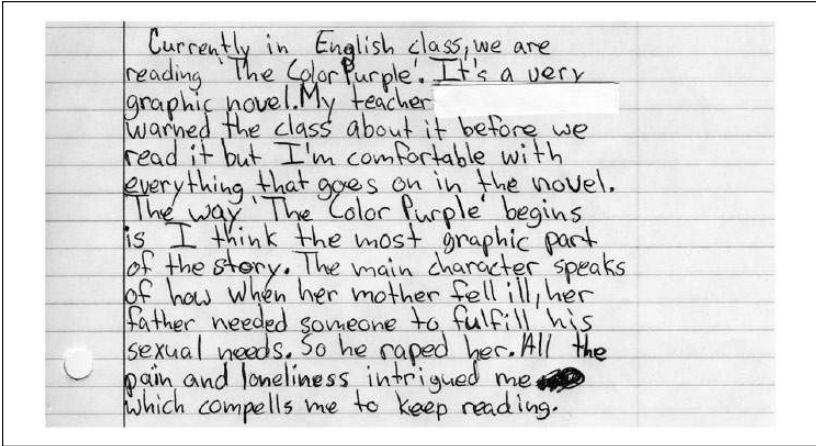 Currently in English class, we are
reading 'The Color Purple'. It's a very
graphic novel. My teacher
warned the class about it before we
read it but I'm comfortable with
everything that goes on in the novel.
The way 'The Color Purple' begins
is I think the most graphic part
of the story. The main character speaks
of how when her mother fell ill, her
father needed someone to fulfill his
sexual needs. So he raped her. All the
pain and loneliness intrigued me
which compells me to keep reading.